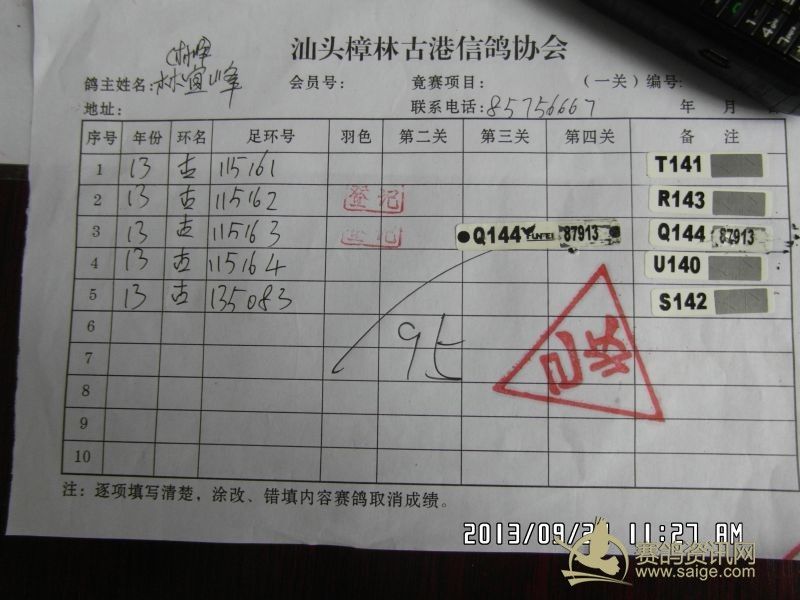 汕头樟林古港信鸽协会
鸽主姓名: 林宜峰 会员号: 竟赛项目: (一关) 编号:
地址: 联系电话: 85756667 年 月
序号 年份 环名 足环号 羽色 第二关 第三关 第四关 备 注
1 13 古 115161 T141
2 13 古 115162 登记 R143
3 13 古 115163 登记 Q144 87913 Q144 87913
4 13 古 115164 U140
5 13 古 135083 S142
6
7
8
9
10
注: 逐项填写清楚, 涂改、错填内容赛鸽取消成绩。
11:27 AM
赛鸽资讯网
www.saige.com